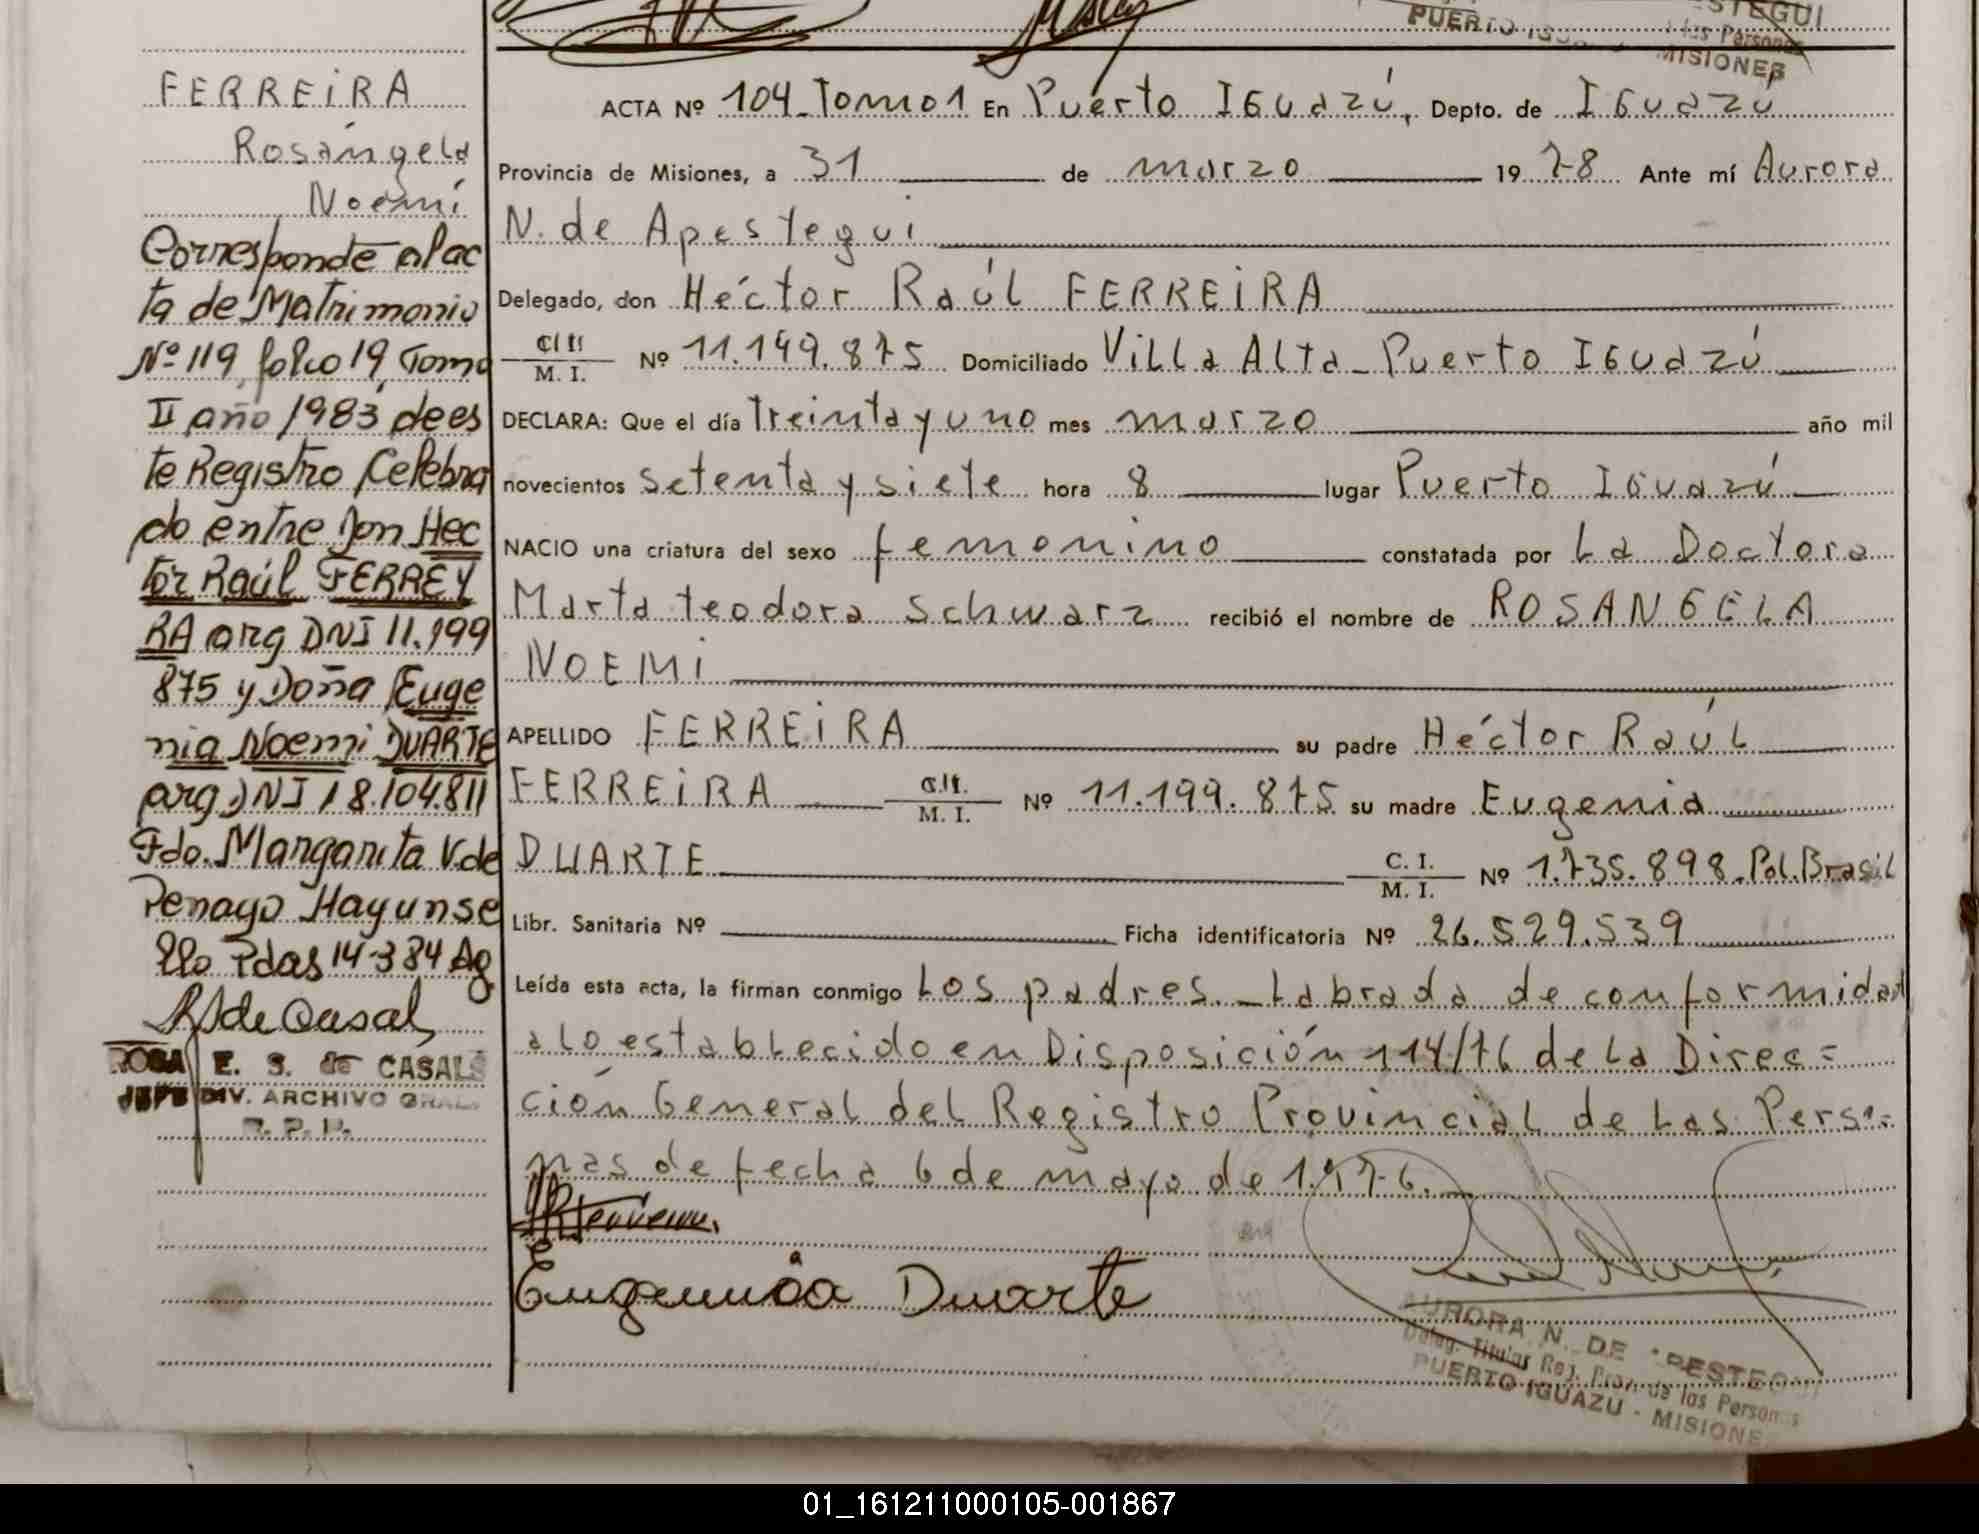 PUERTO
STEGUI
las Personas
MISIONES
FERREIRA
Rosángela
Noemí
Corresponde al ac
ta de Matrimonio
Nº 119, folio 19, Tomo
II año 1983 de es
te Registro Celebra
do entre Don Hec
tor Raúl FERREY
RA arg DNI 11.199
875 y Doña Euge
nia Noemi DUARTE
arg DNI 18.104.811
Fdo. Margarita V. de
Penayo Hayunse
Pdas 14-3 84 Ag
R S de Casals
ROSA E. S. de CASALS
JEFE DIV. ARCHIVO GRAL.
R. P. P.
ACTA Nº 104 Tomo 1 En Puerto Iguazú, Depto. de Iguazú
Provincia de Misiones, a 31 de marzo 1978 Ante mí Aurora
N. de Apestegui
Delegado, don Héctor Raúl FERREIRA
M. I. Nº 11.149.875 Domiciliado Villa Alta - Puerto Iguazú
DECLARA: Que el día treinta y uno mes marzo año mil
novecientos setenta y siete hora 8 lugar Puerto Iguazú
NACIO una criatura del sexo femonino constatada por La Doctora
Marta teodora Schwarz recibió el nombre de ROSANGELA
NOEMI
APELLIDO FERREIRA su padre Héctor Raúl
FERREIRA M. I. Nº 11.199.875 su madre Eugenia
DUARTE C. I. M. I. Nº 1.735.898 Pol. Brasil
Libr. Sanitaria Nº Ficha identificatoria Nº 26.529.539
Leída esta acta, la firman conmigo Los padres. - Labrada de conformidad
a lo establecido en Disposición 114/76 de la Direc=
ción General del Registro Provincial de Las Perso=
nas de fecha 6 de mayo de 1.976.
Eugenia Duarte
AURORA N. DE APESTEGUI
Deleg. Titular Reg. Prov. de las Personas
PUERTO IGUAZU - MISIONES
01_161211000105-001867